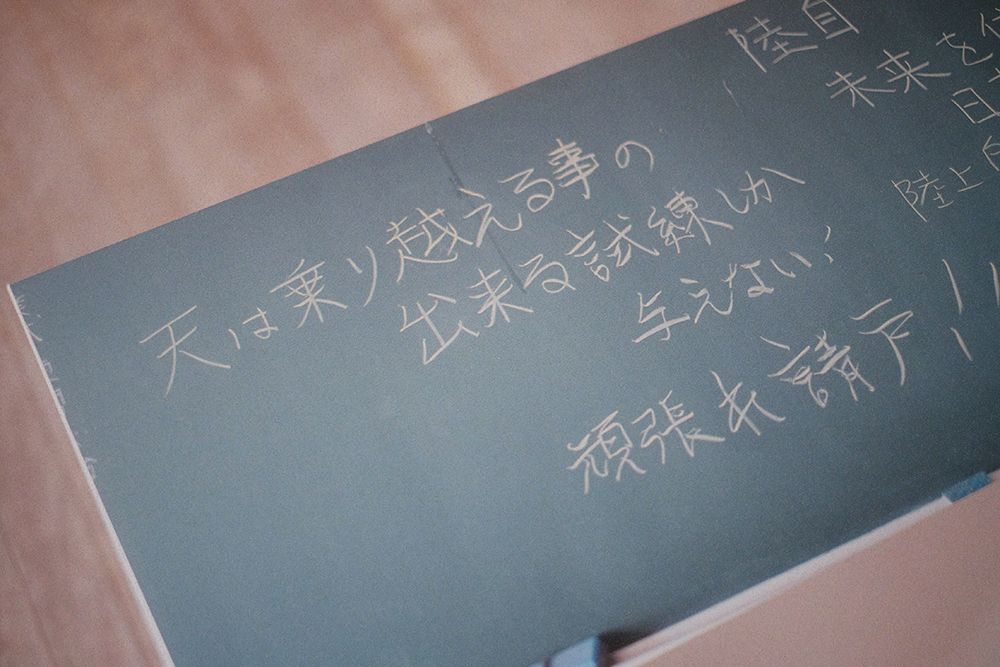 天は乗り越える事の
出来る試練しか
与えない、
頑張れ請戸!!
陸自
未来を
日
陸上自